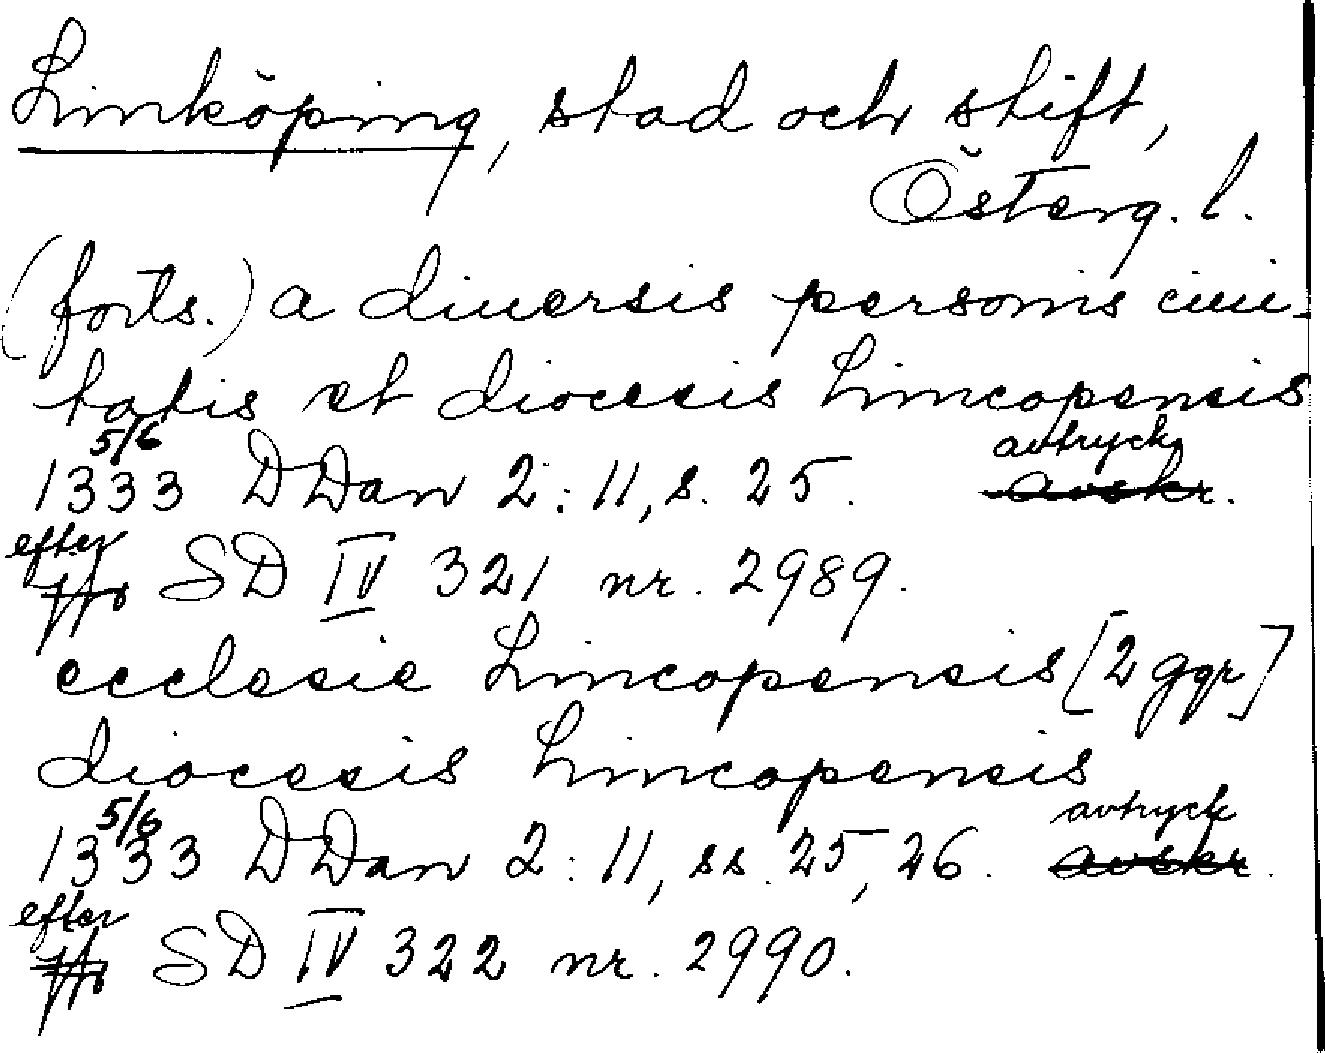 Linköping, stad och stift,
Österg. l.
(forts.) a diuersis personis ciui-
tatis et diocesis Lincopensis
5/6 avtryck
1333 DDan 2:11, s. 25. avskr.
efter
jfr SD IV 321 nr. 2989.
ecclesie Lincopensis [2 ggr]
diocesis Lincopensis
5/6 avtryck
1333 DDan 2:11, ss. 25, 26. avskr.
efter
jfr SD IV 322 nr. 2990.